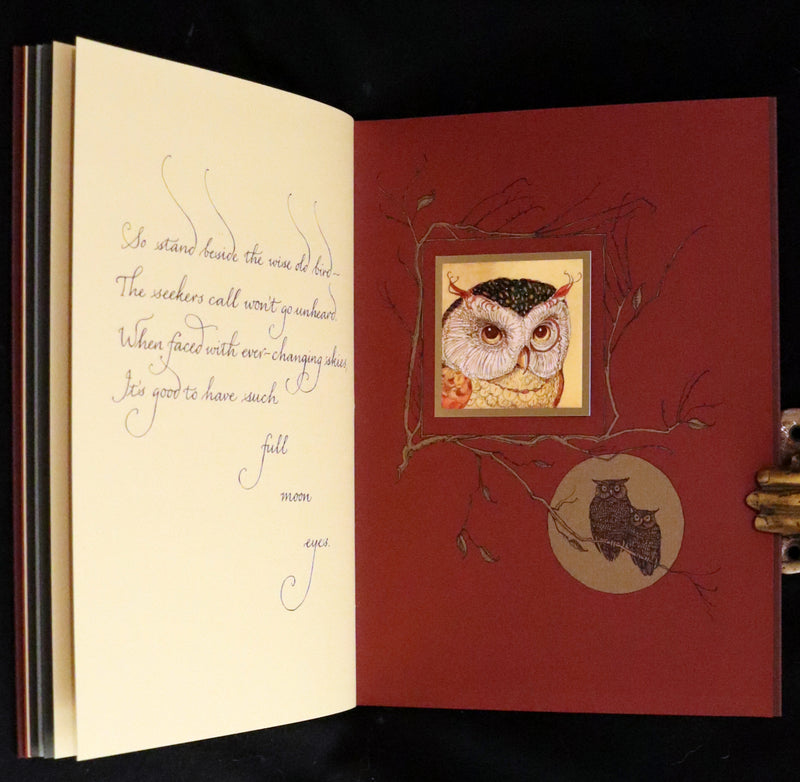 So stand beside the wise old bird~
The seekers call won't go unheard.
When faced with ever-changing skies,
It's good to have such
full
moon
eyes.